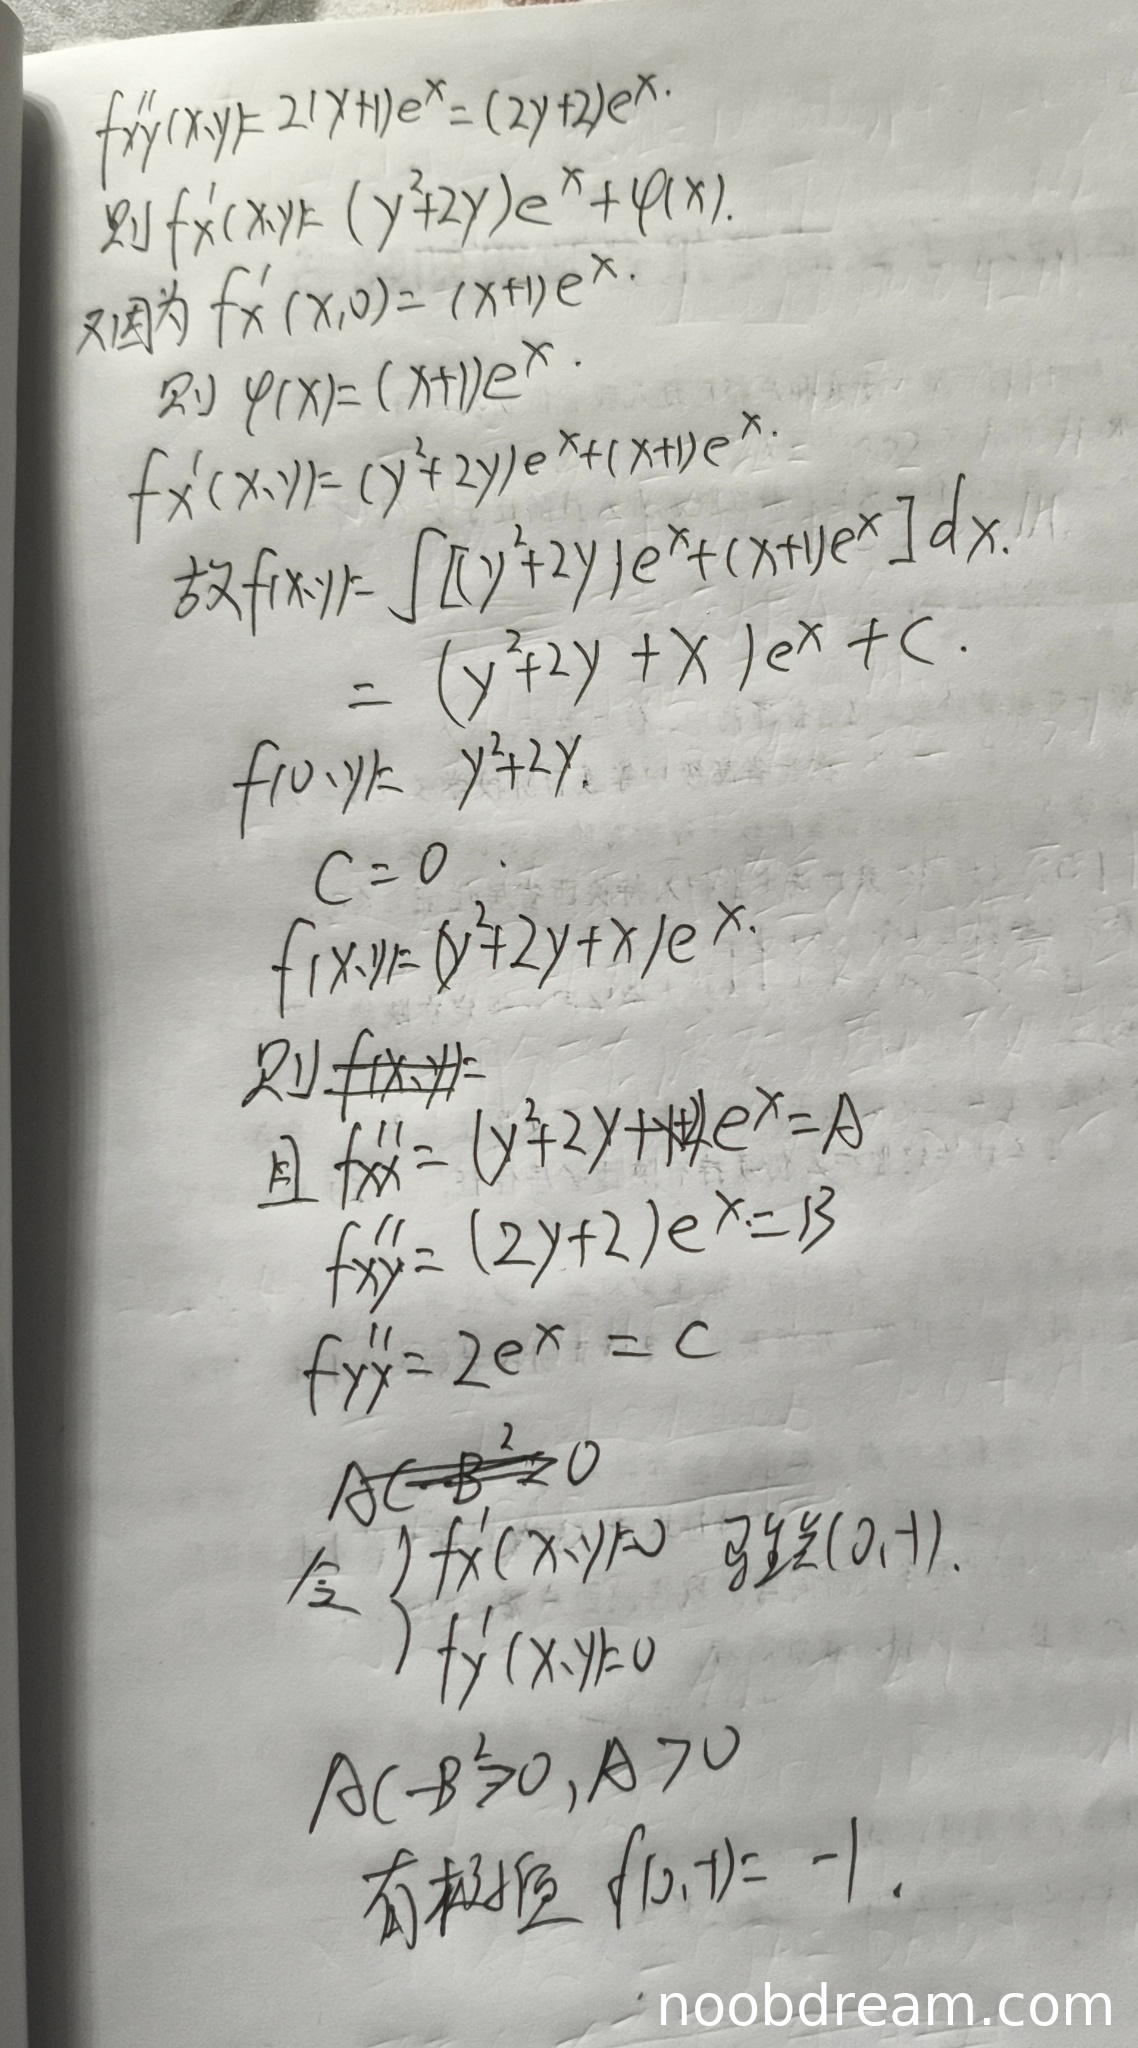 f''xy(x,y)=2(y+1)e^x=(2y+2)e^x.
则f'x(x,y)=(y²+2y)e^x+φ(x).
又因为 f'x(x,0)=(x+1)e^x.
则 φ(x)=(x+1)e^x.
f'x(x,y)=(y²+2y)e^x+(x+1)e^x.
故f(x,y)=∫[(y²+2y)e^x+(x+1)e^x]dx.
=(y²+2y+x)e^x+C.
f(0,y)= y²+2y.
C=0.
f(x,y)=(y²+2y+x)e^x.
则 f(x,y)=
且 f''xx=(y²+2y+x+2)e^x=A
f''xy=(2y+2)e^x=B
f''yy=2e^x=C
AC-B²≥0
令 { f'x(x,y)=0 驻点(0,-1).
f'y(x,y)=0
AC-B²>0, A>0
有极值 f(0,-1)= -1.
noobdream.com